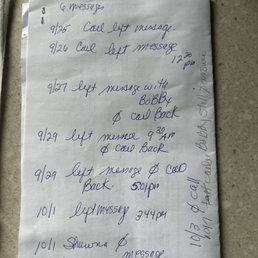 6 messages
9/25 Call left message.
9/26 Call left message
12 20 pm
9/27 left message with
BoBBy
Ø call Back
9/29 left message 9 30 AM
Ø call Back
9/29 left message Ø call
Back 501pm
10/1 left message 344pm
10/1 Shawna Ø
message
10/3 Ø call
Bobby still